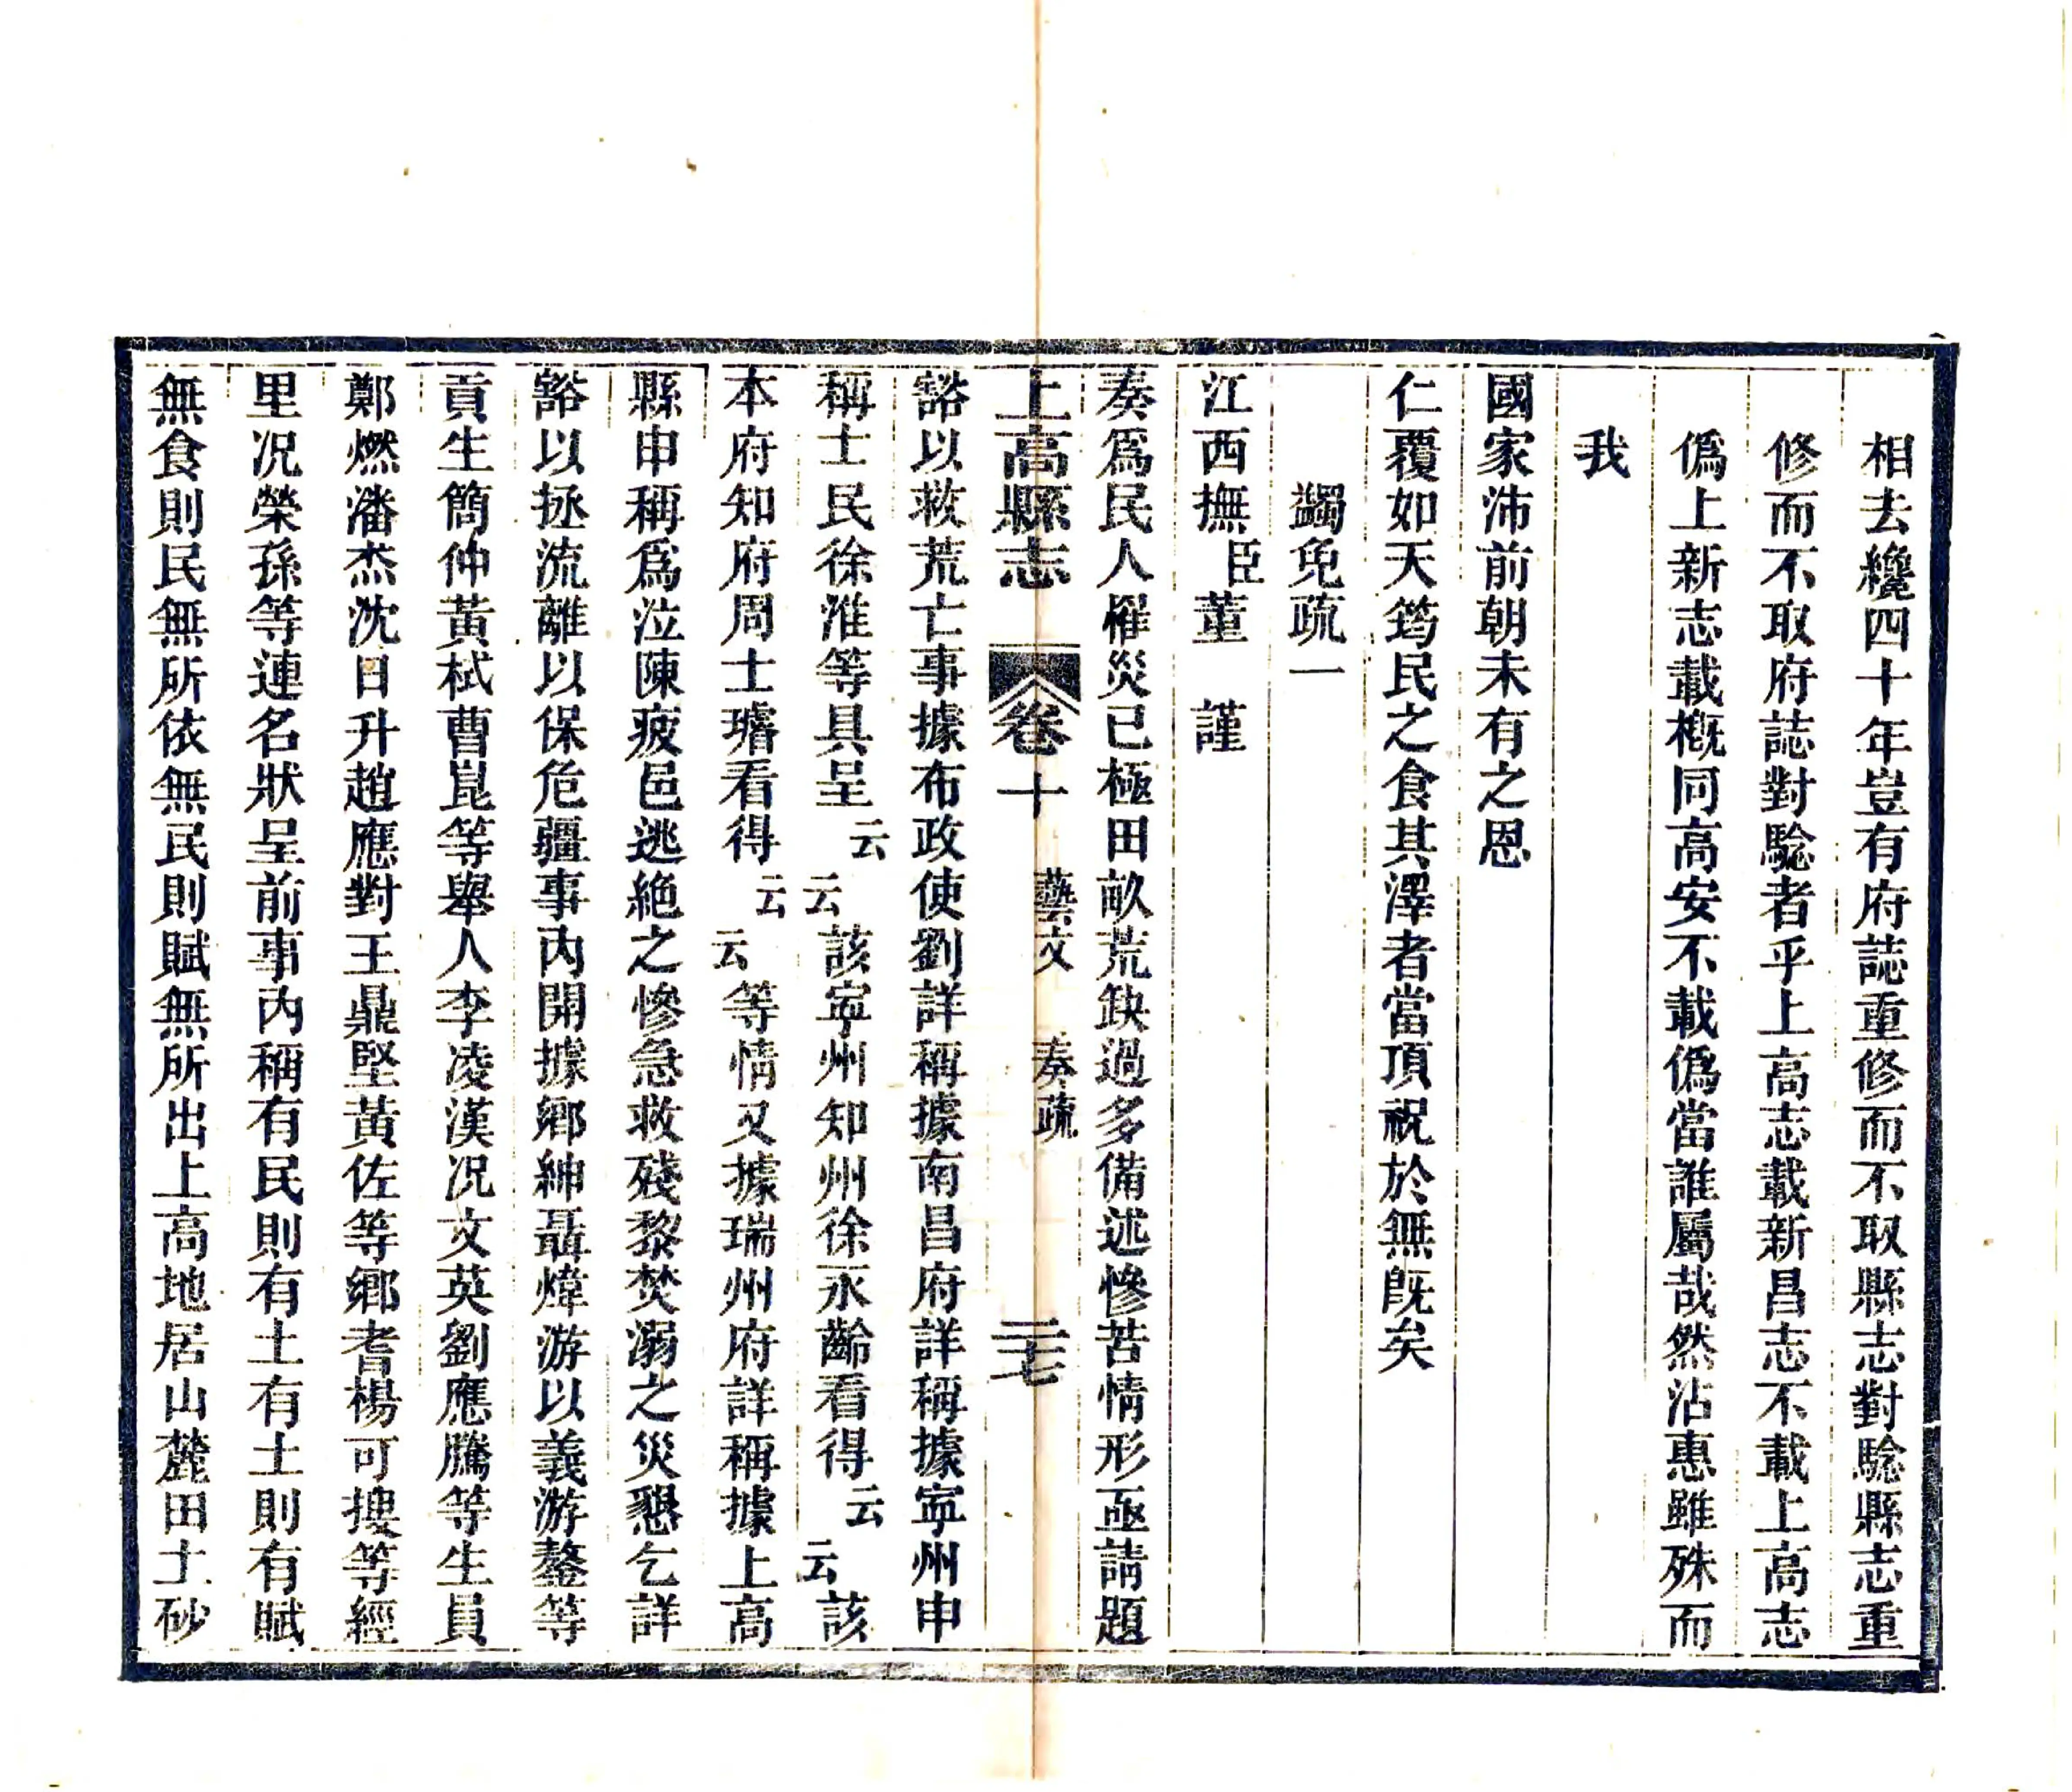 相去纔四十年豈有府誌重修而不取縣志對騐縣志重
修而不取府誌對騐者乎上高志載新昌志不載上高志
僞上新志載槪同高安不載僞當誰屬哉然沾惠雖殊而
我
國家沛前朝未有之恩
仁覆如天筠民之食其澤者當頂祝於無旣矣
蠲免疏一
江西撫臣董　謹
奏爲民人罹災已極田畝荒缺過多備述慘苦情形亟請題
上高縣志　卷十　藝文　奏疏　二七
豁以救荒亡事據布政使劉詳稱據南昌府詳稱據寧州申
稱士民徐淮等具呈云云該寧州知州徐永齡看得云云該
本府知府周士璿看得云云等情又據瑞州府詳稱據上高
縣申稱爲泣陳疲邑逃絶之慘急救殘黎焚溺之災懇乞詳
豁以拯流離以保危疆事內開據鄕紳聶煒游以義游鏊等
貢生簡仲黃栻曹崑等舉人李凌漢况文英劉應騰等生員
鄭燃潘杰沈日升趙應對王鼎堅黃佐等鄕耆楊可搜等經
里况榮孫等連名狀呈前事內稱有民則有土有土則有賦
無食則民無所依無民則賦無所出上高地居山麓田土砂